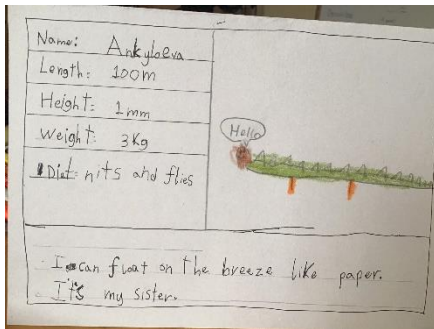 Name: Ankyloeva
Length: 100m
Height: 1mm
Weight: 3Kg
Diet: nits and flies
Hello
I can float on the breeze like paper.
It's my sister.